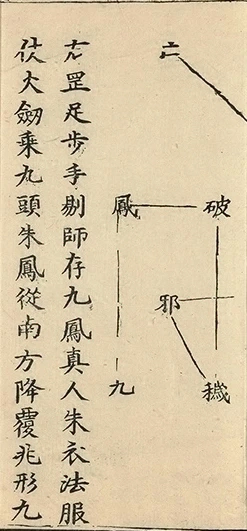 破
穢
邪
鳳
九
罡足步手剔師存九鳳真人朱衣法服
火劒乘九頭朱鳳從南方降覆兆形九